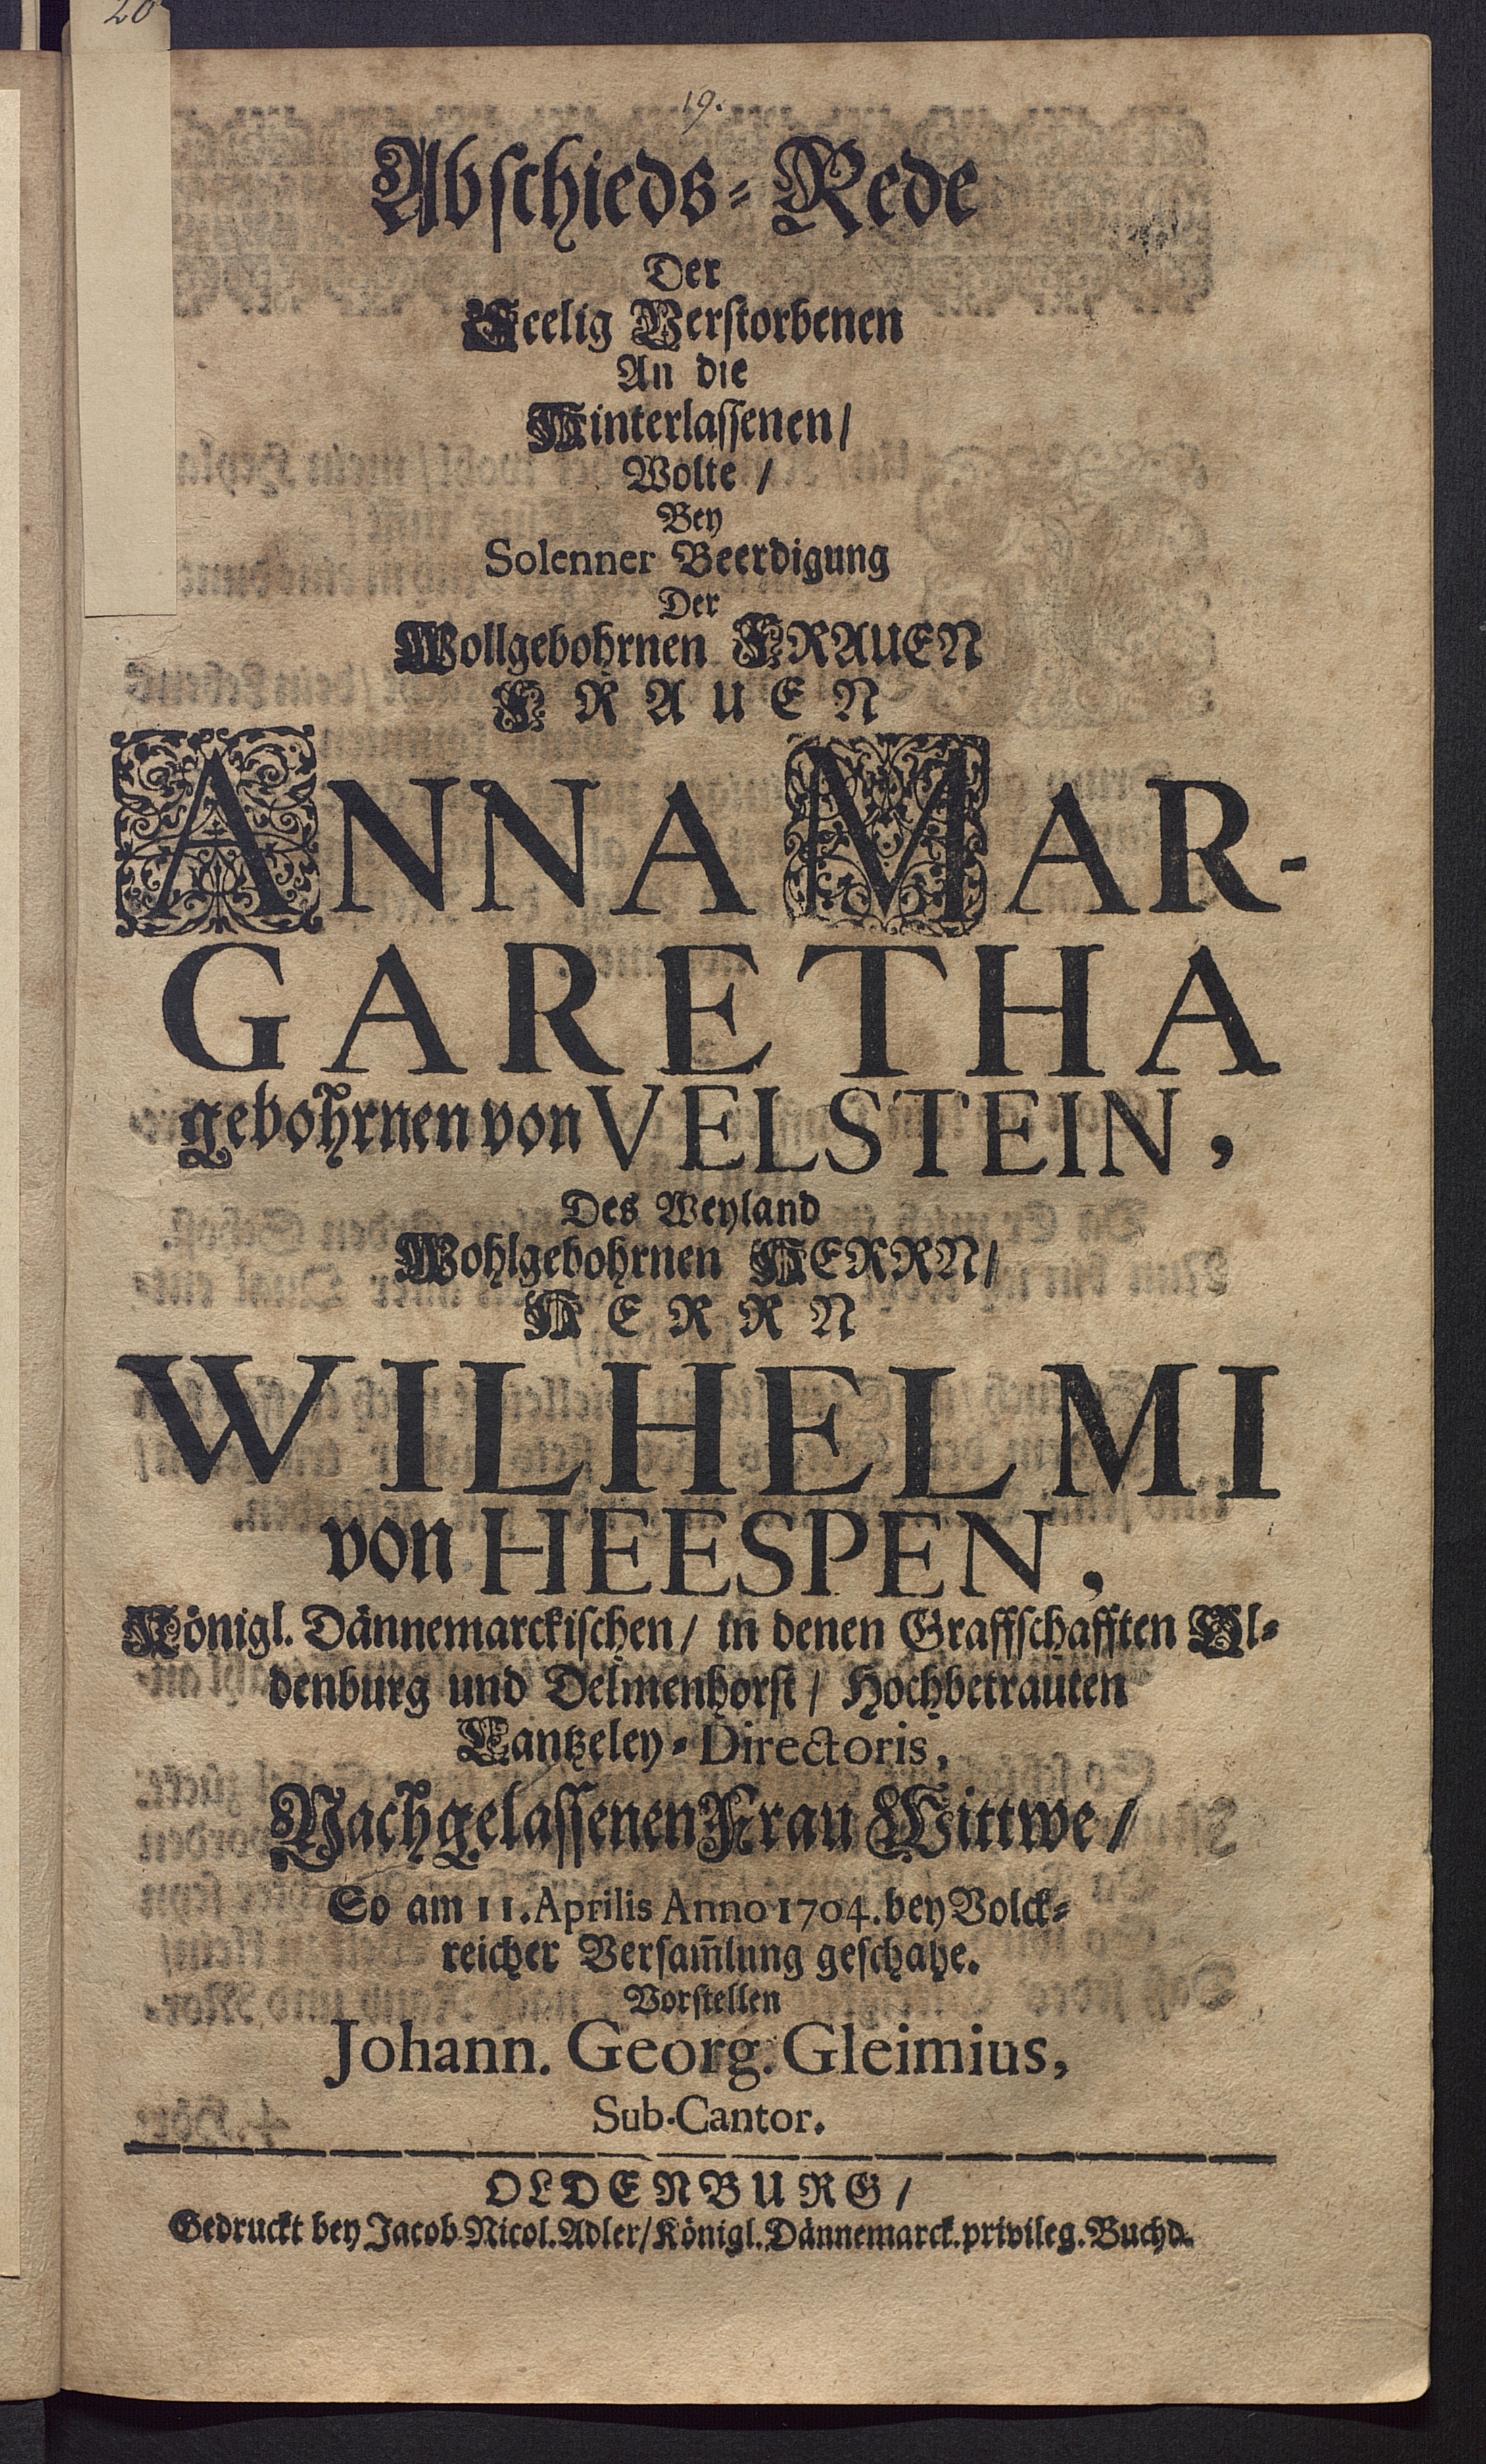 20
19.
Abschieds-Rede
Der
Seelig Verstorbenen
An die
Hinterlassenen/
Wolte/
Bey
Solenner Beerdigung
Der
Wollgebohrnen FRAUEN
FRAUEN
ANNA MAR-
GARETHA
gebohrnen von VELSTEIN,
Des Weyland
Wohlgebohrnen HERRN/
HERRN
WILHELMI
von HEESPEN,
Königl. Dännemarckischen/ in denen Graffschafften Ol-
denburg und Delmenhorst/ Hochbetrauten
Cantzeley-Directoris,
Nachgelassenen Frau Wittwe/
So am 11. Aprilis Anno 1704. bey Volck-
reicher Versam̃lung geschahe.
Vorstellen
Johann. Georg. Gleimius,
Sub-Cantor.
OLDENBURG/
Gedruckt bey Jacob Nicol. Adler/ Königl. Dännemarck. privileg. Buchd.